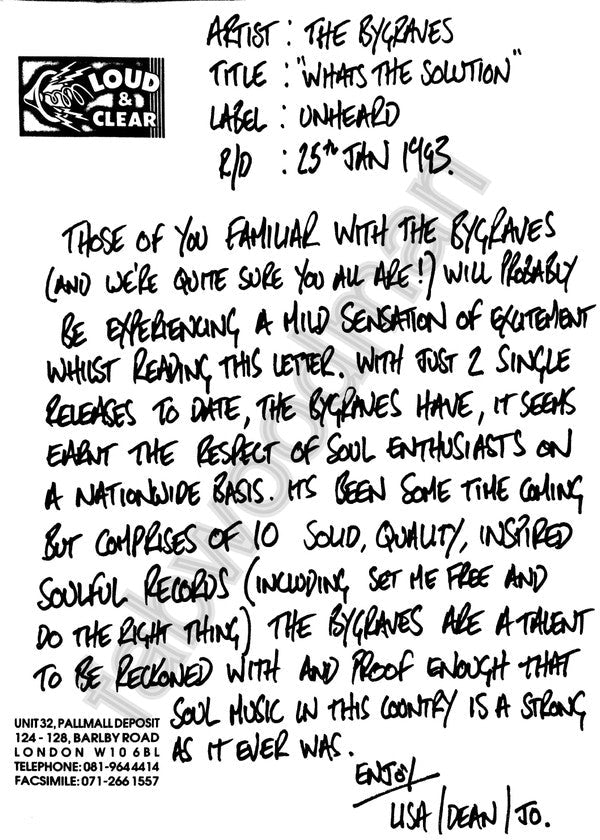 LOUD
&
CLEAR
ARTIST : THE BYGRAVES
TITLE : "WHATS THE SOLUTION"
LABEL : UNHEARD
R/D : 25th JAN 1993.
THOSE OF YOU FAMILIAR WITH THE BYGRAVES
(AND WE'RE QUITE SURE YOU ALL ARE!) WILL PROBABLY
BE EXPERIENCING A MILD SENSATION OF EXCITEMENT
WHILST READING THIS LETTER. WITH JUST 2 SINGLE
RELEASES TO DATE, THE BYGRAVES HAVE, IT SEEMS
EARNT THE RESPECT OF SOUL ENTHUSIASTS ON
A NATIONWIDE BASIS. ITS BEEN SOME TIME COMING
BUT COMPRISES OF 10 SOLID, QUALITY, INSPIRED
SOULFUL RECORDS (INCLUDING SET ME FREE AND
DO THE RIGHT THING) THE BYGRAVES ARE A TALENT
TO BE RECKONED WITH AND PROOF ENOUGH THAT
SOUL MUSIC IN THIS COUNTRY IS A STRONG
AS IT EVER WAS.
ENJOY
LISA/DEAN/JO.
UNIT 32, PALLMALL DEPOSIT
124 - 128, BARLBY ROAD
LONDON W10 6BL
TELEPHONE: 081-964 4414
FACSIMILE: 071-266 1557